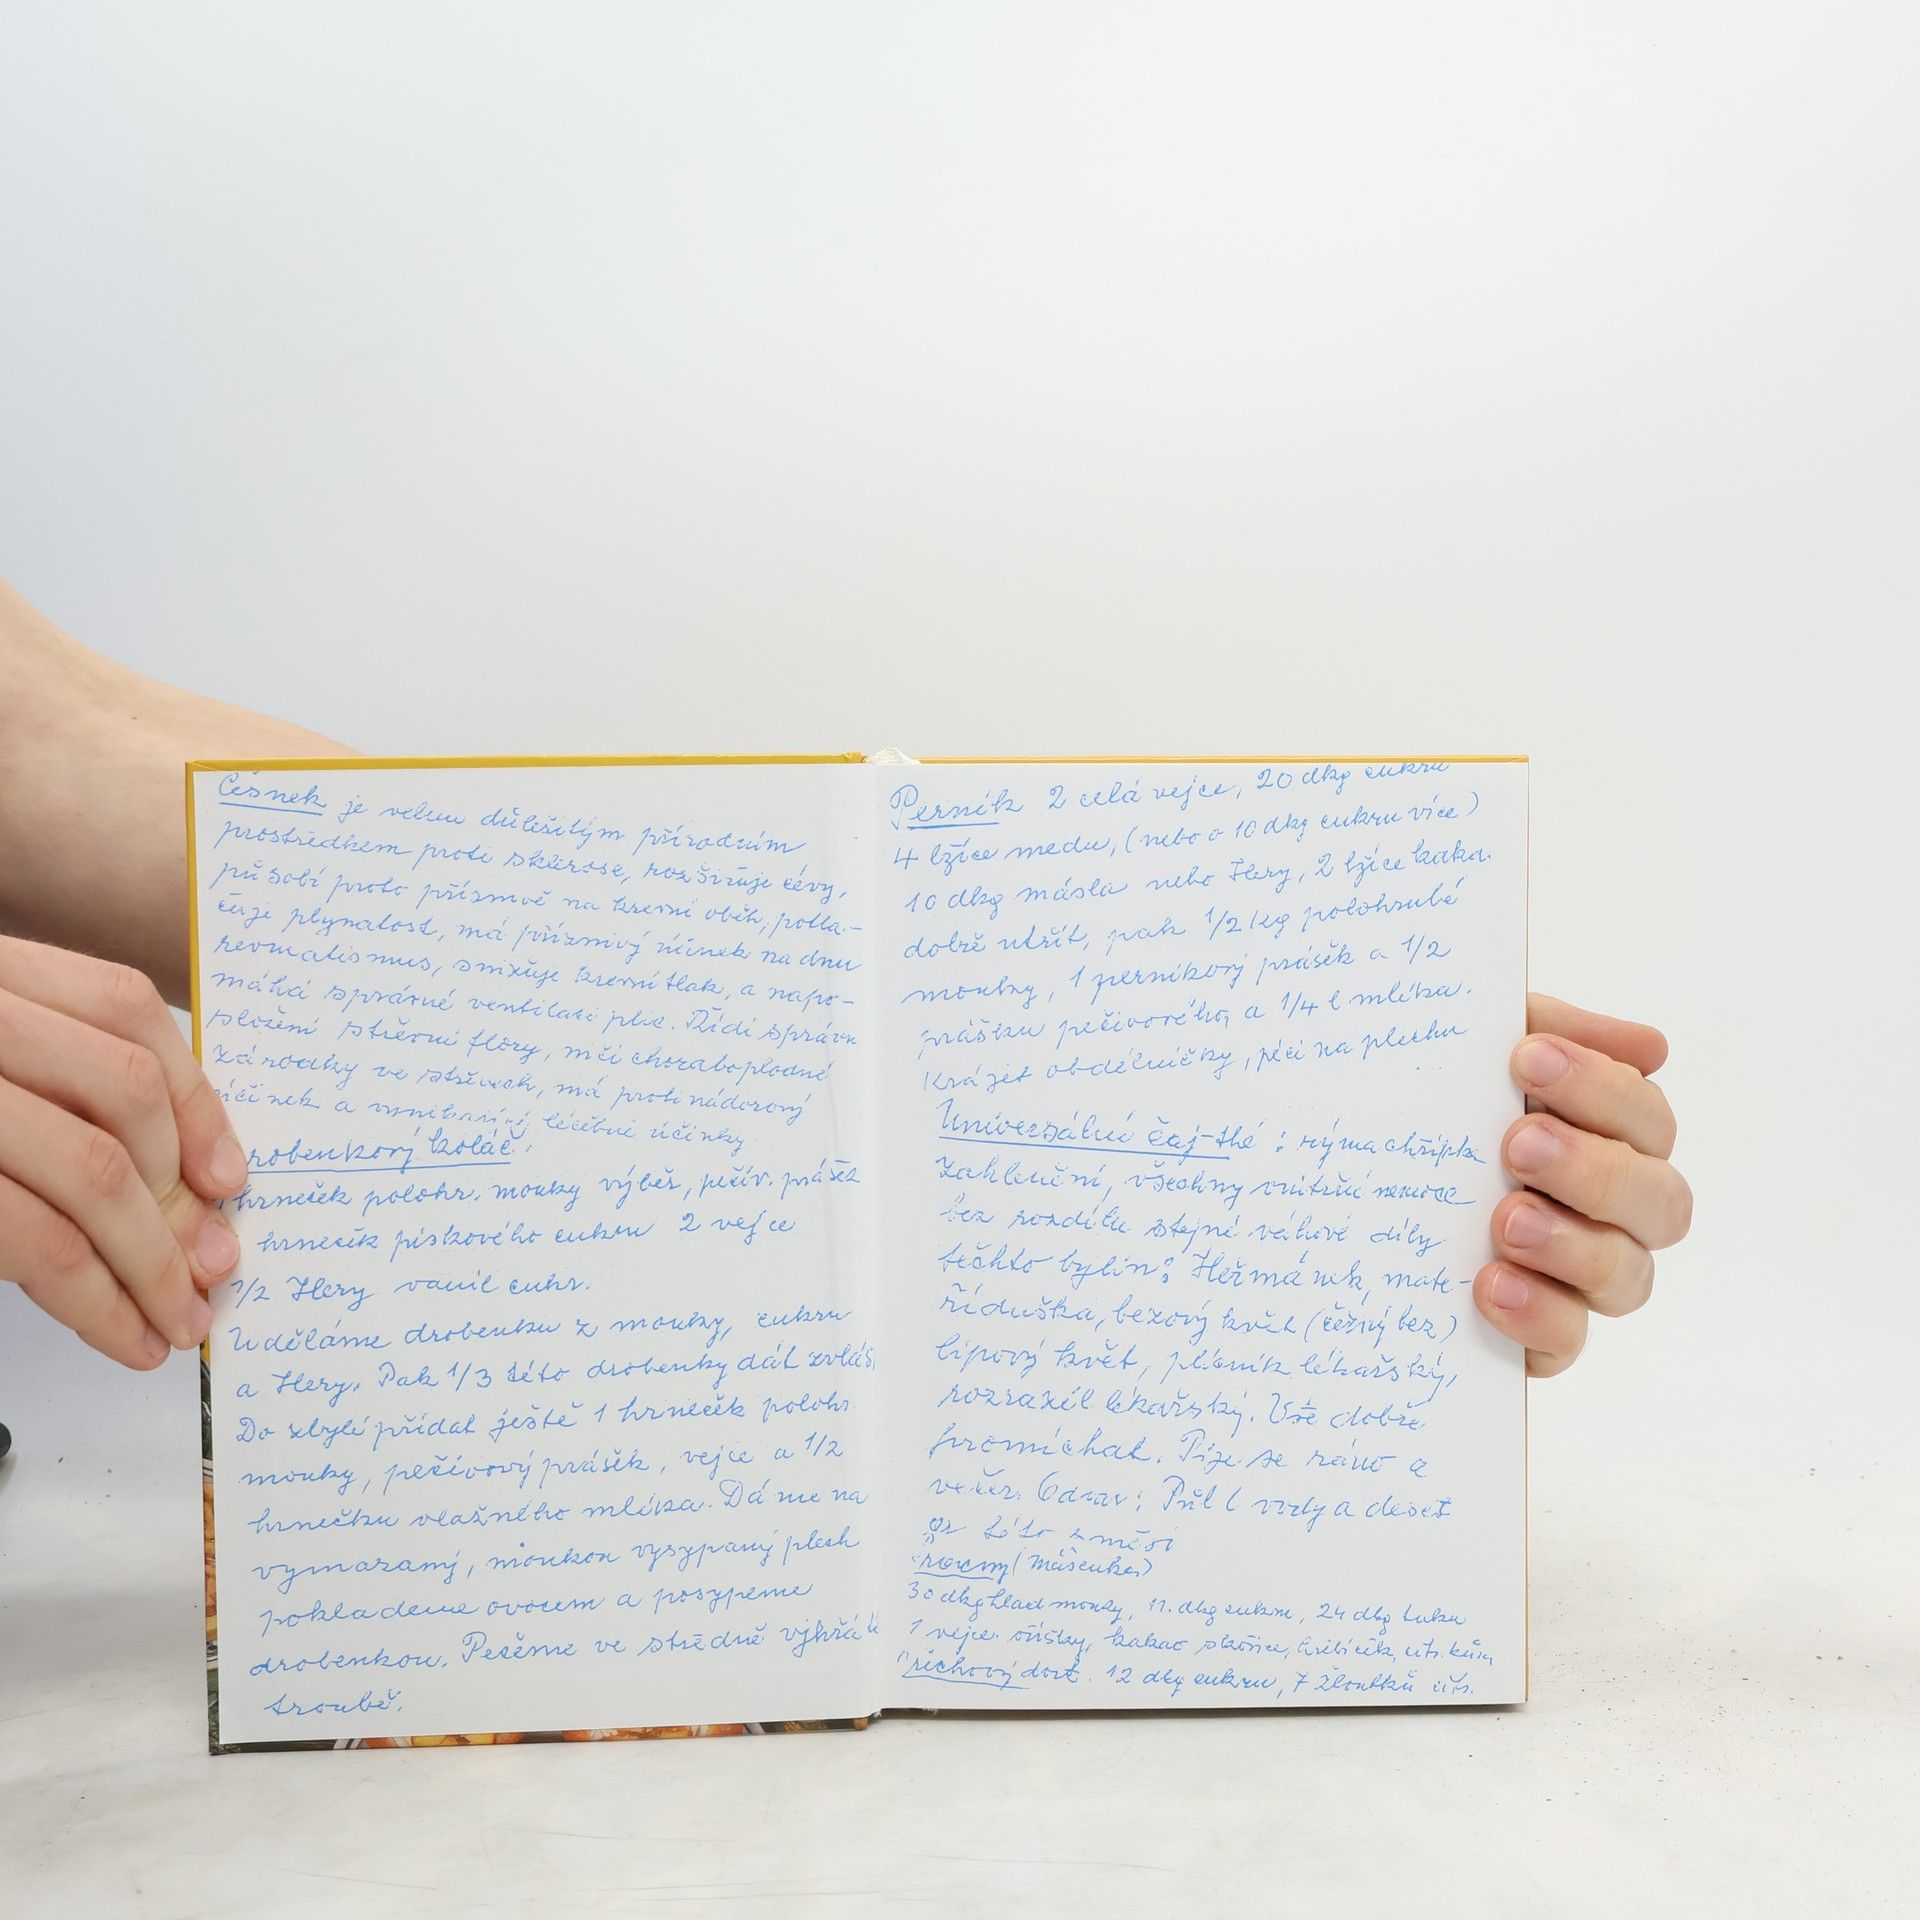 Česnek je velmi důležitým přírodním
prostředkem proti skleróse, rozšiřuje cévy,
působí proto příznivě na krevní oběh, potla-
čuje plynatost, má příznivý účinek na dnu
revmatismus, snižuje krevní tlak, a napo-
máhá správné ventilaci plic. Řídí správn
složení střevní flory, ničí choroboplodné
zárodky ve střevech, má protinádorový
účinek a vynikající léčebné účinky.
robenkový koláč.
hrneček polohr. mouky výběr, pečív. prášek
hrneček pískového cukru 2 vejce
1/2 Hery vanil cukr.
Uděláme drobenku z mouky, cukru
a Hery. Pak 1/3 této drobenky dát zvlášť
Do zbylé přidat ještě 1 hrneček polohr.
mouky, pečivový prášek, vejce a 1/2
hrnečku vlažného mléka. Dáme na
vymazaný, moukou vysypaný plech
poklademe ovocem a posypeme
drobenkou. Pečeme ve středně vyhřáté
troubě.
Perník 2 celá vejce, 20 dkg cukru
4 lžíce medu, (nebo o 10 dkg cukru více)
10 dkg másla nebo Hery, 2 lžíce kaka.
dobře utřít, pak 1/2 kg polohrubé
mouky, 1 perníkový prášek a 1/2
prášku pečivového, a 1/4 l mléka.
Krájet obdélníčky, péci na plechu
Universální čaj-thé : rýma chřipka
Zahlenění, všechny vnitřní nemoce
bez rozdílu stejné váhové díly
těchto bylin: Heřmánek, mate-
říduška, bezový květ (čěrný bez)
lipový květ, plicník lékařský,
rozrazil lékařský. Vše dobře
promíchat. Pije se ráno a
večer. Odvar: Půl l vody a deset
gr této směsi
(Mašenka)
30 dkg hlad mouky, 11. dkg cukru, 24 dkg tuku
1 vejce oříšky, kakao skořice, hřebíček, citr. kůra
řechový dort. 12 dkg cukru, 7 žloutků